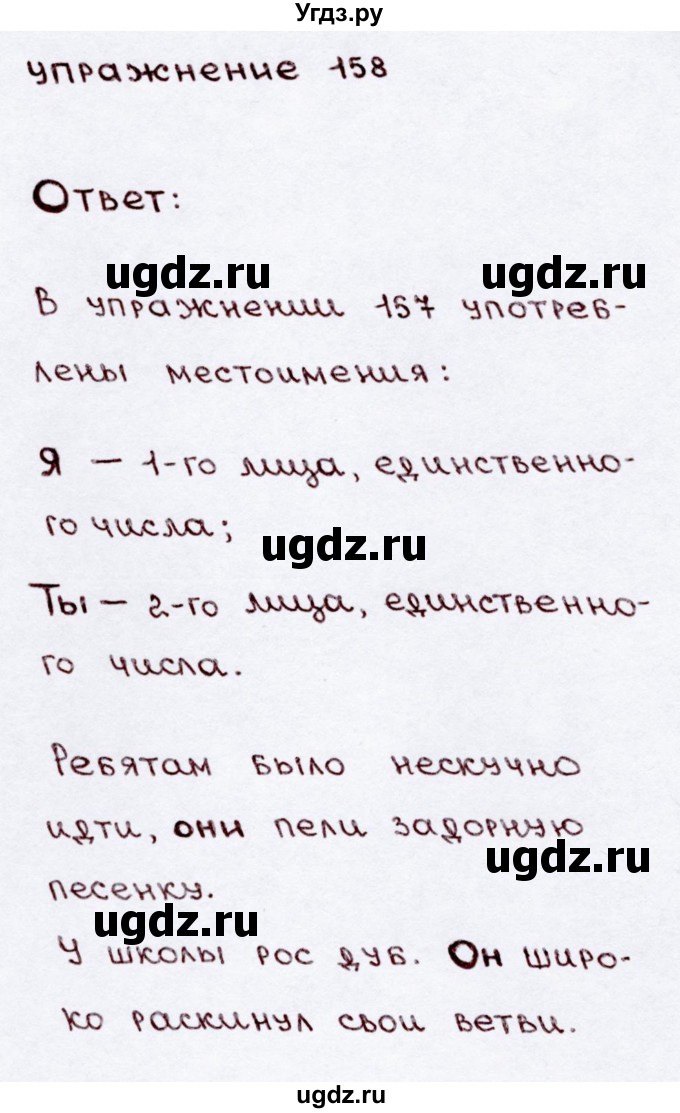 Угдз.ру
упражнение 158
Ответ:
ugdz.ru ugdz.ru
В упражнении 157 употреб-
лены местоимения:
Я – 1-го лица, единственно-
го числа;
ugdz.ru
Ты – 2-го лица, единственно-
го числа.
Ребятам было нескучно
идти, они пели задорную
ugdz.ru
песенку.
ugdz.ru
У школы рос дуб. Он широ-
ко раскинул свои ветви.
ugdz.ru